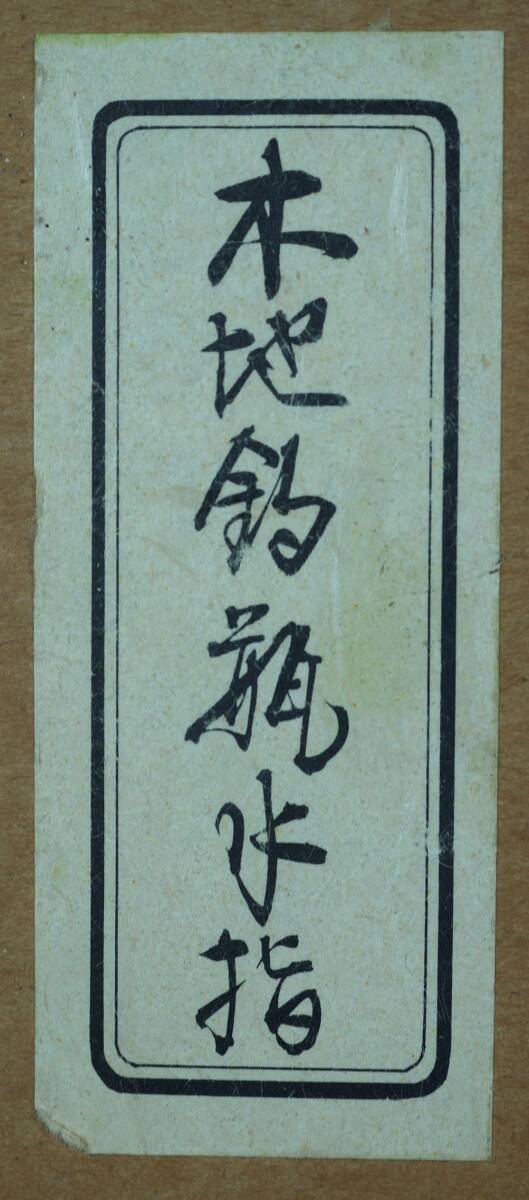 木地釣瓶水指